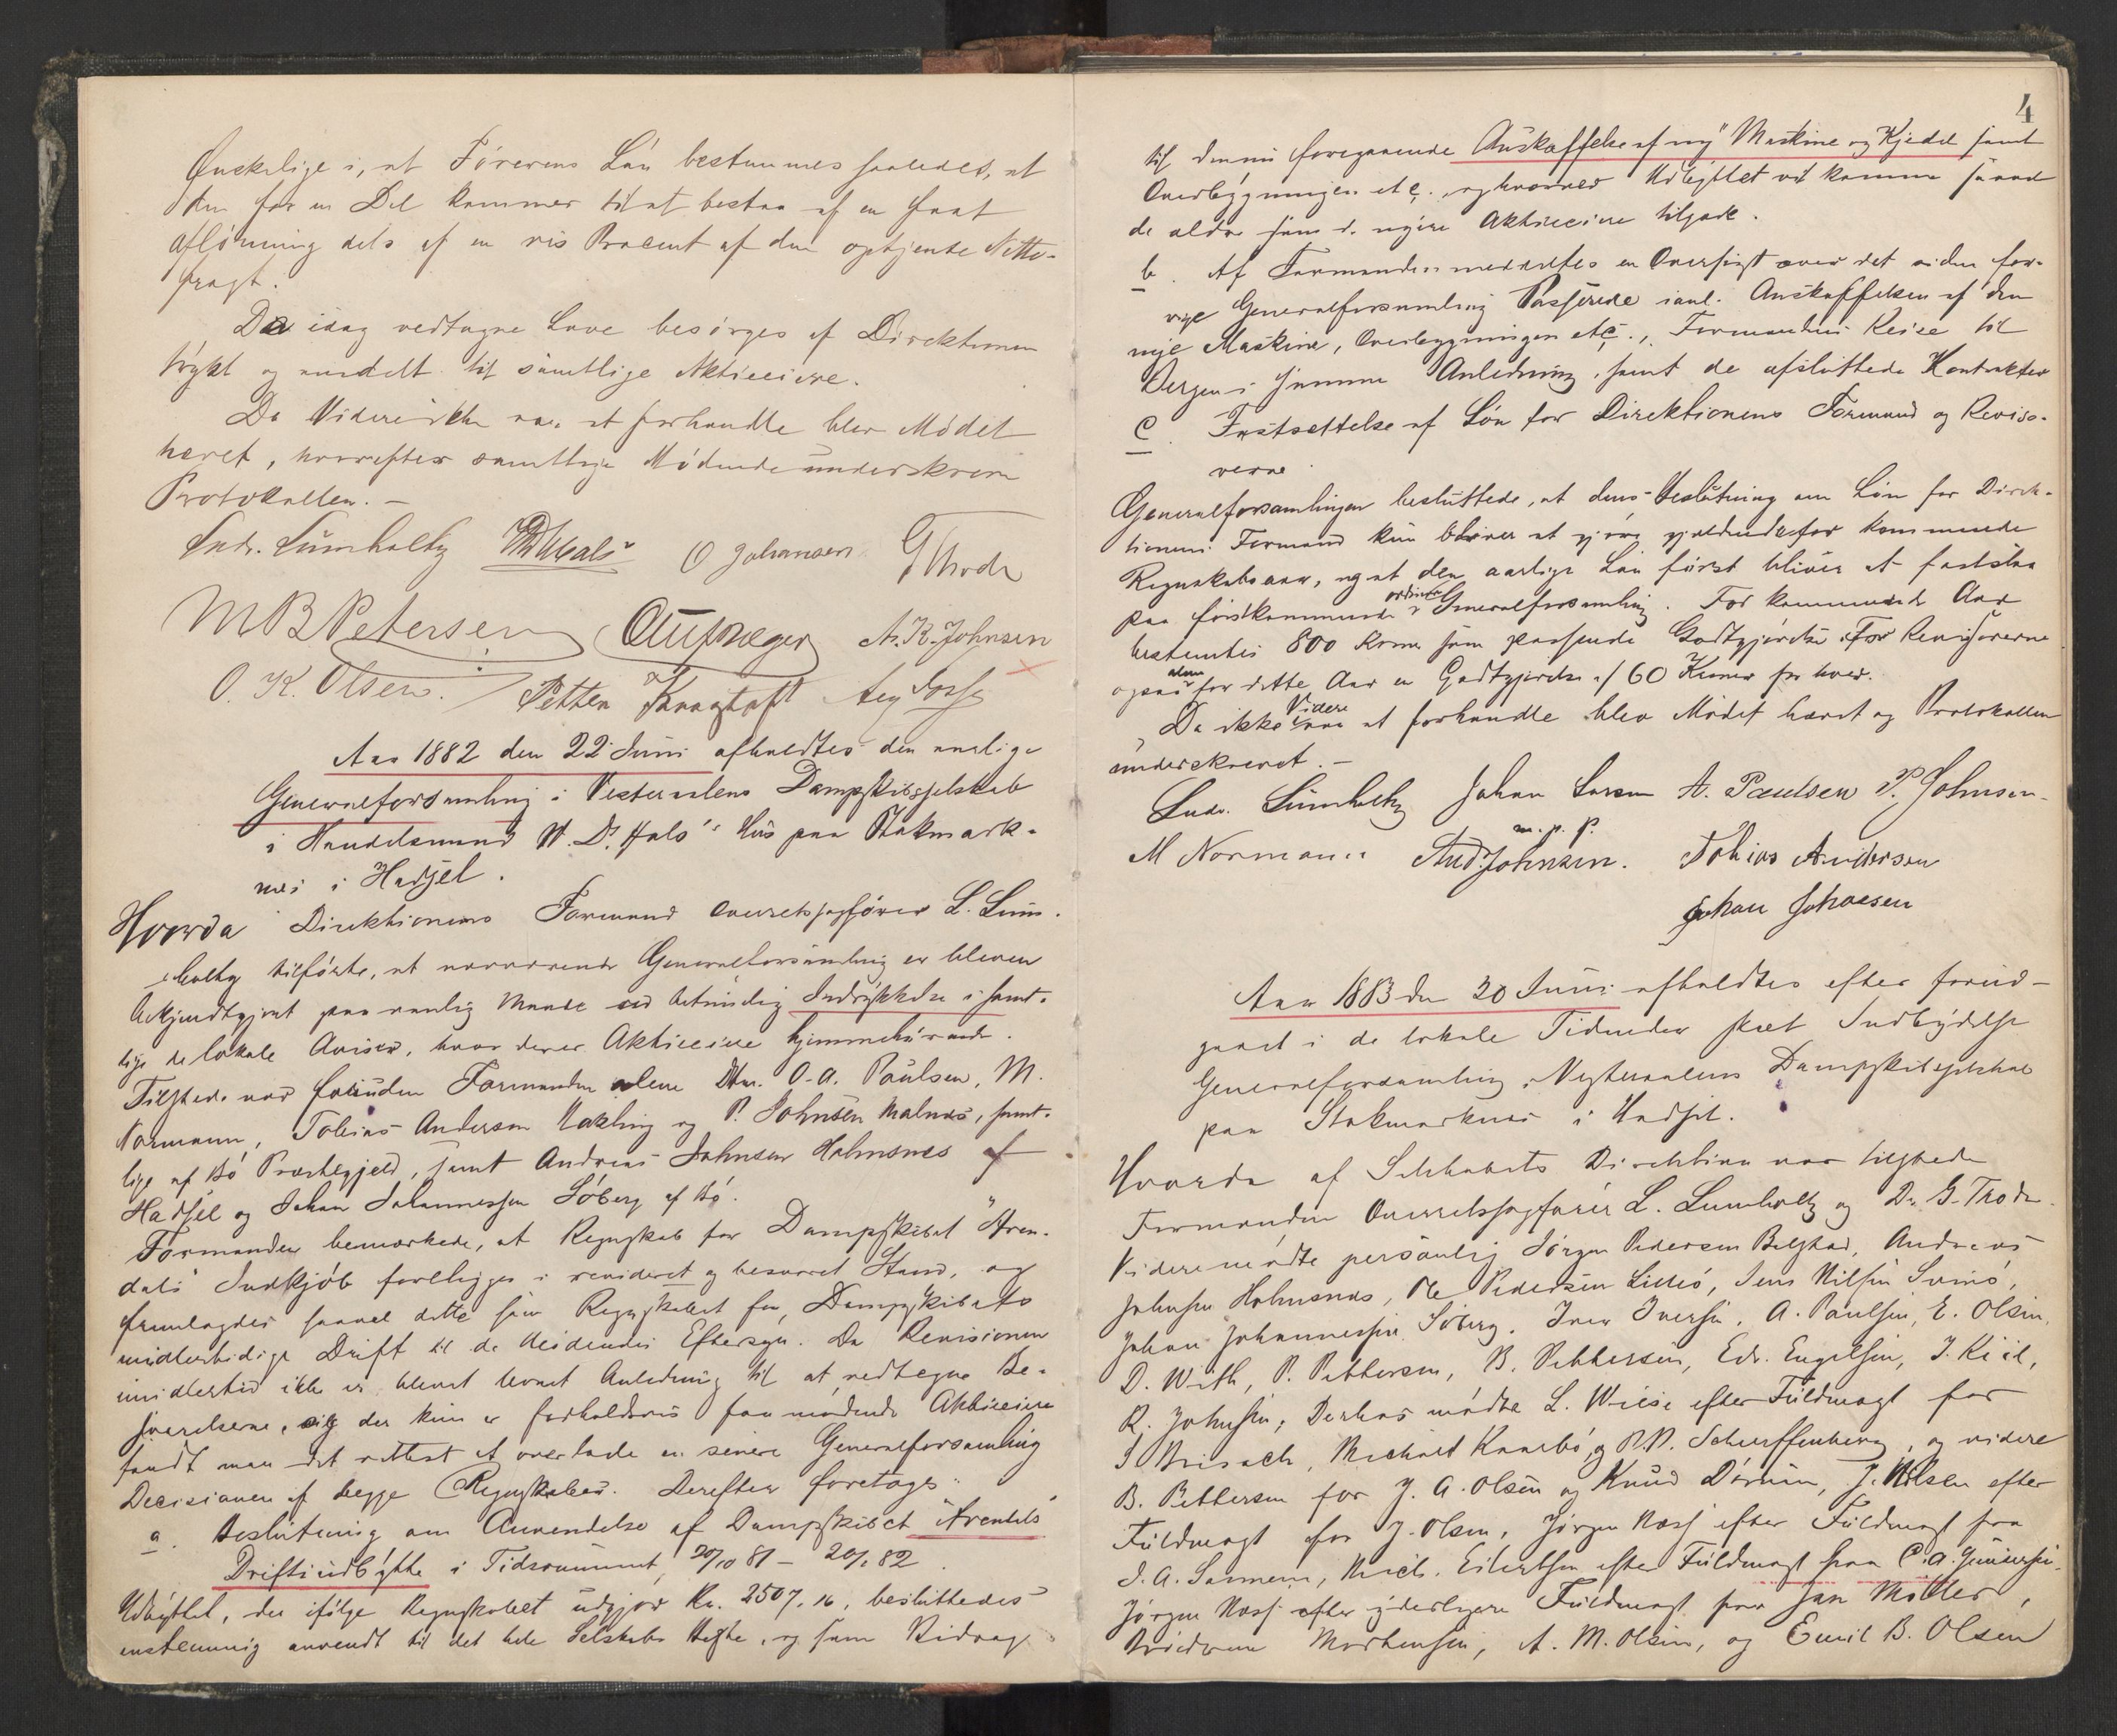 Ønskelige i, at Førerens Løn bestemmes saaledes, at
den for en Del kommer til at bestaa af en fast
Aflønning dels af en vis Procent af den optjente Netto-
fragt.
De idag vedtagne Love besørges af Direktionen
trykt og omdelt til samtlige Aktieeiere.
Da Videre ikke var at forhandle blev Mødet
hævet, hvorefter samtlige Mødende underskrev
Protokollen. —
Ludv. Lumholtz WDHals O Johansen G Thode
M B Petersen A. K. Johnsen
O. K. Olsen. Petter
Aar 1882 den 22 Juni afholdtes den aarlige
Generalforsamling i Vesteraalens Dampskibsselskab
i Handelsmand W. D. Hals's Hus paa Stokmark-
næs i Hadsel.
Hvorda Direktionens Formand Overretssagfører L. Lum-
holtz tilførte, at nærværende Generalforsamling er bleven
bekjendtgjort paa vanlig Maade ved betimelig Indrykkelse i samt-
lige de lokale Aviser, hvor der er Aktieeiere hjemmehørende.
Tilstede var foruden Formanden alene Hr. O. A. Paulsen, M.
Normann, Tobias Andersen Vækling og P. Johnsen Malnæs, samt-
lige af Bø Præstegjeld, samt Andreas Johnsen Holmsnes af
Hadsel og Johan Johannessen Søberg af Bø.
Formanden bemærkede, at Regnskab for Dampskibet "Aren-
dals" Indkjøb foreligger i revideret og besvaret Stand, og
fremlagdes saavel dette som Regnskabet for Dampskibets
midlertidige Drift til de Mødendes Eftersyn. Da Revisionen
imidlertid ikke er blevet levnet Anledning til at vedtegne Be-
svarelserne, og der kun er forholdsvis faa mødende Aktieeiere
fandt man det rettest at overlade en senere Generalforsamling
Decisionen af begge Regnskaber. Derefter foretoges:
a. Beslutning om Anvendelse af Dampskibet "Arendals"
Driftsudbytte i Tidsrummet, 20/10 81 – 20/1 82.
Udbyttet, der ifølge Regnskabet udgjør Kr. 2507.16, besluttedes
enstemmig anvendt til det hele Selskabs Bedste, og som Bidrag
4
til den nu foregaaende Anskaffelse af ny Maskine og Kjedel samt
Overbygningen etc., og hvorved Udbyttet vil komme saavel
de ældre som de nyere Aktieeiere tilgode.
b. Af Formanden meddeltes en Oversigt over det siden for-
rige Generalforsamling Passerede i anl. Anskaffelsen af den
nye Maskine, Overbygningen etc., Formandens Reise til
Bergen i samme Anledning, samt de afsluttede Kontrakter
c. Fastsettelse af Løn for Direktionens Formand og Reviso-
rerne.
Generalforsamlingen besluttede, at dens Beslutning om Løn for Direk-
tionens Formand kun bliver at gjøre gjeldende for kommende
Regnskabsaar, og at den aarlige Løn først bliver at fastslaa
paa førstkommende ordinære Generalforsamling. For kommende Aar
bestemtes 800 Kroner som passende Godtgjørelse. For Revisorerne
ogsaa alene for dette Aar en Godtgjørelse af 60 Kroner for hver.
Da ikke Videre var at forhandle blev Mødet hævet og Protokollen
underskrevet. —
Ludv. Lumholtz Johan Larsen A. Paulsen P. Johnsen
m. p. P.
M Normann And. Johnsen. Tobias Andersen
Johan Johansen
Aar 1883 den 30 Juni afholdtes efter forud-
gaaet i de lokale Tidender sket Indbydelse
Generalforsamling i Vesteraalens Dampskibsselskab
paa Stokmarknes i Hadsel.
Hvorda af Selskabets Direktion var tilstede
Formanden Overretssagfører L. Lumholtz og Dr. G. Thode.
Videre mødte personlig Jørgen Pedersen Belstad, Andreas
Johnsen Holmsnes, Ole Pedersen Lillø, Jens Nilsen Svinø,
Johan Johannessen Søberg, Iver Iversen, A. Paulsen, E. Olsen,
D. With, P. Pettersen, B. Pettersen, Edv. Engelsen, J. Kiil,
R. Johnsen; Derhos mødte L. Wiese efter Fuldmagt for
Michael Knarbø, og P. P. Scheffenberg, og videre
B. Pettersen for J. A. Olsen og Knud Dørum, J. Nilsen efter
Fuldmagt for J. Olsen, Jørgen Næss efter Fuldmagt fra
J. A. Mich. Eilertsen efter Fuldmagt fra C. A. Gundersen
Jørgen Næss efter yderligere Fuldmagt fra Jan Møller,
Mortensen, A. M. Olsen, og Emil B. Olsen